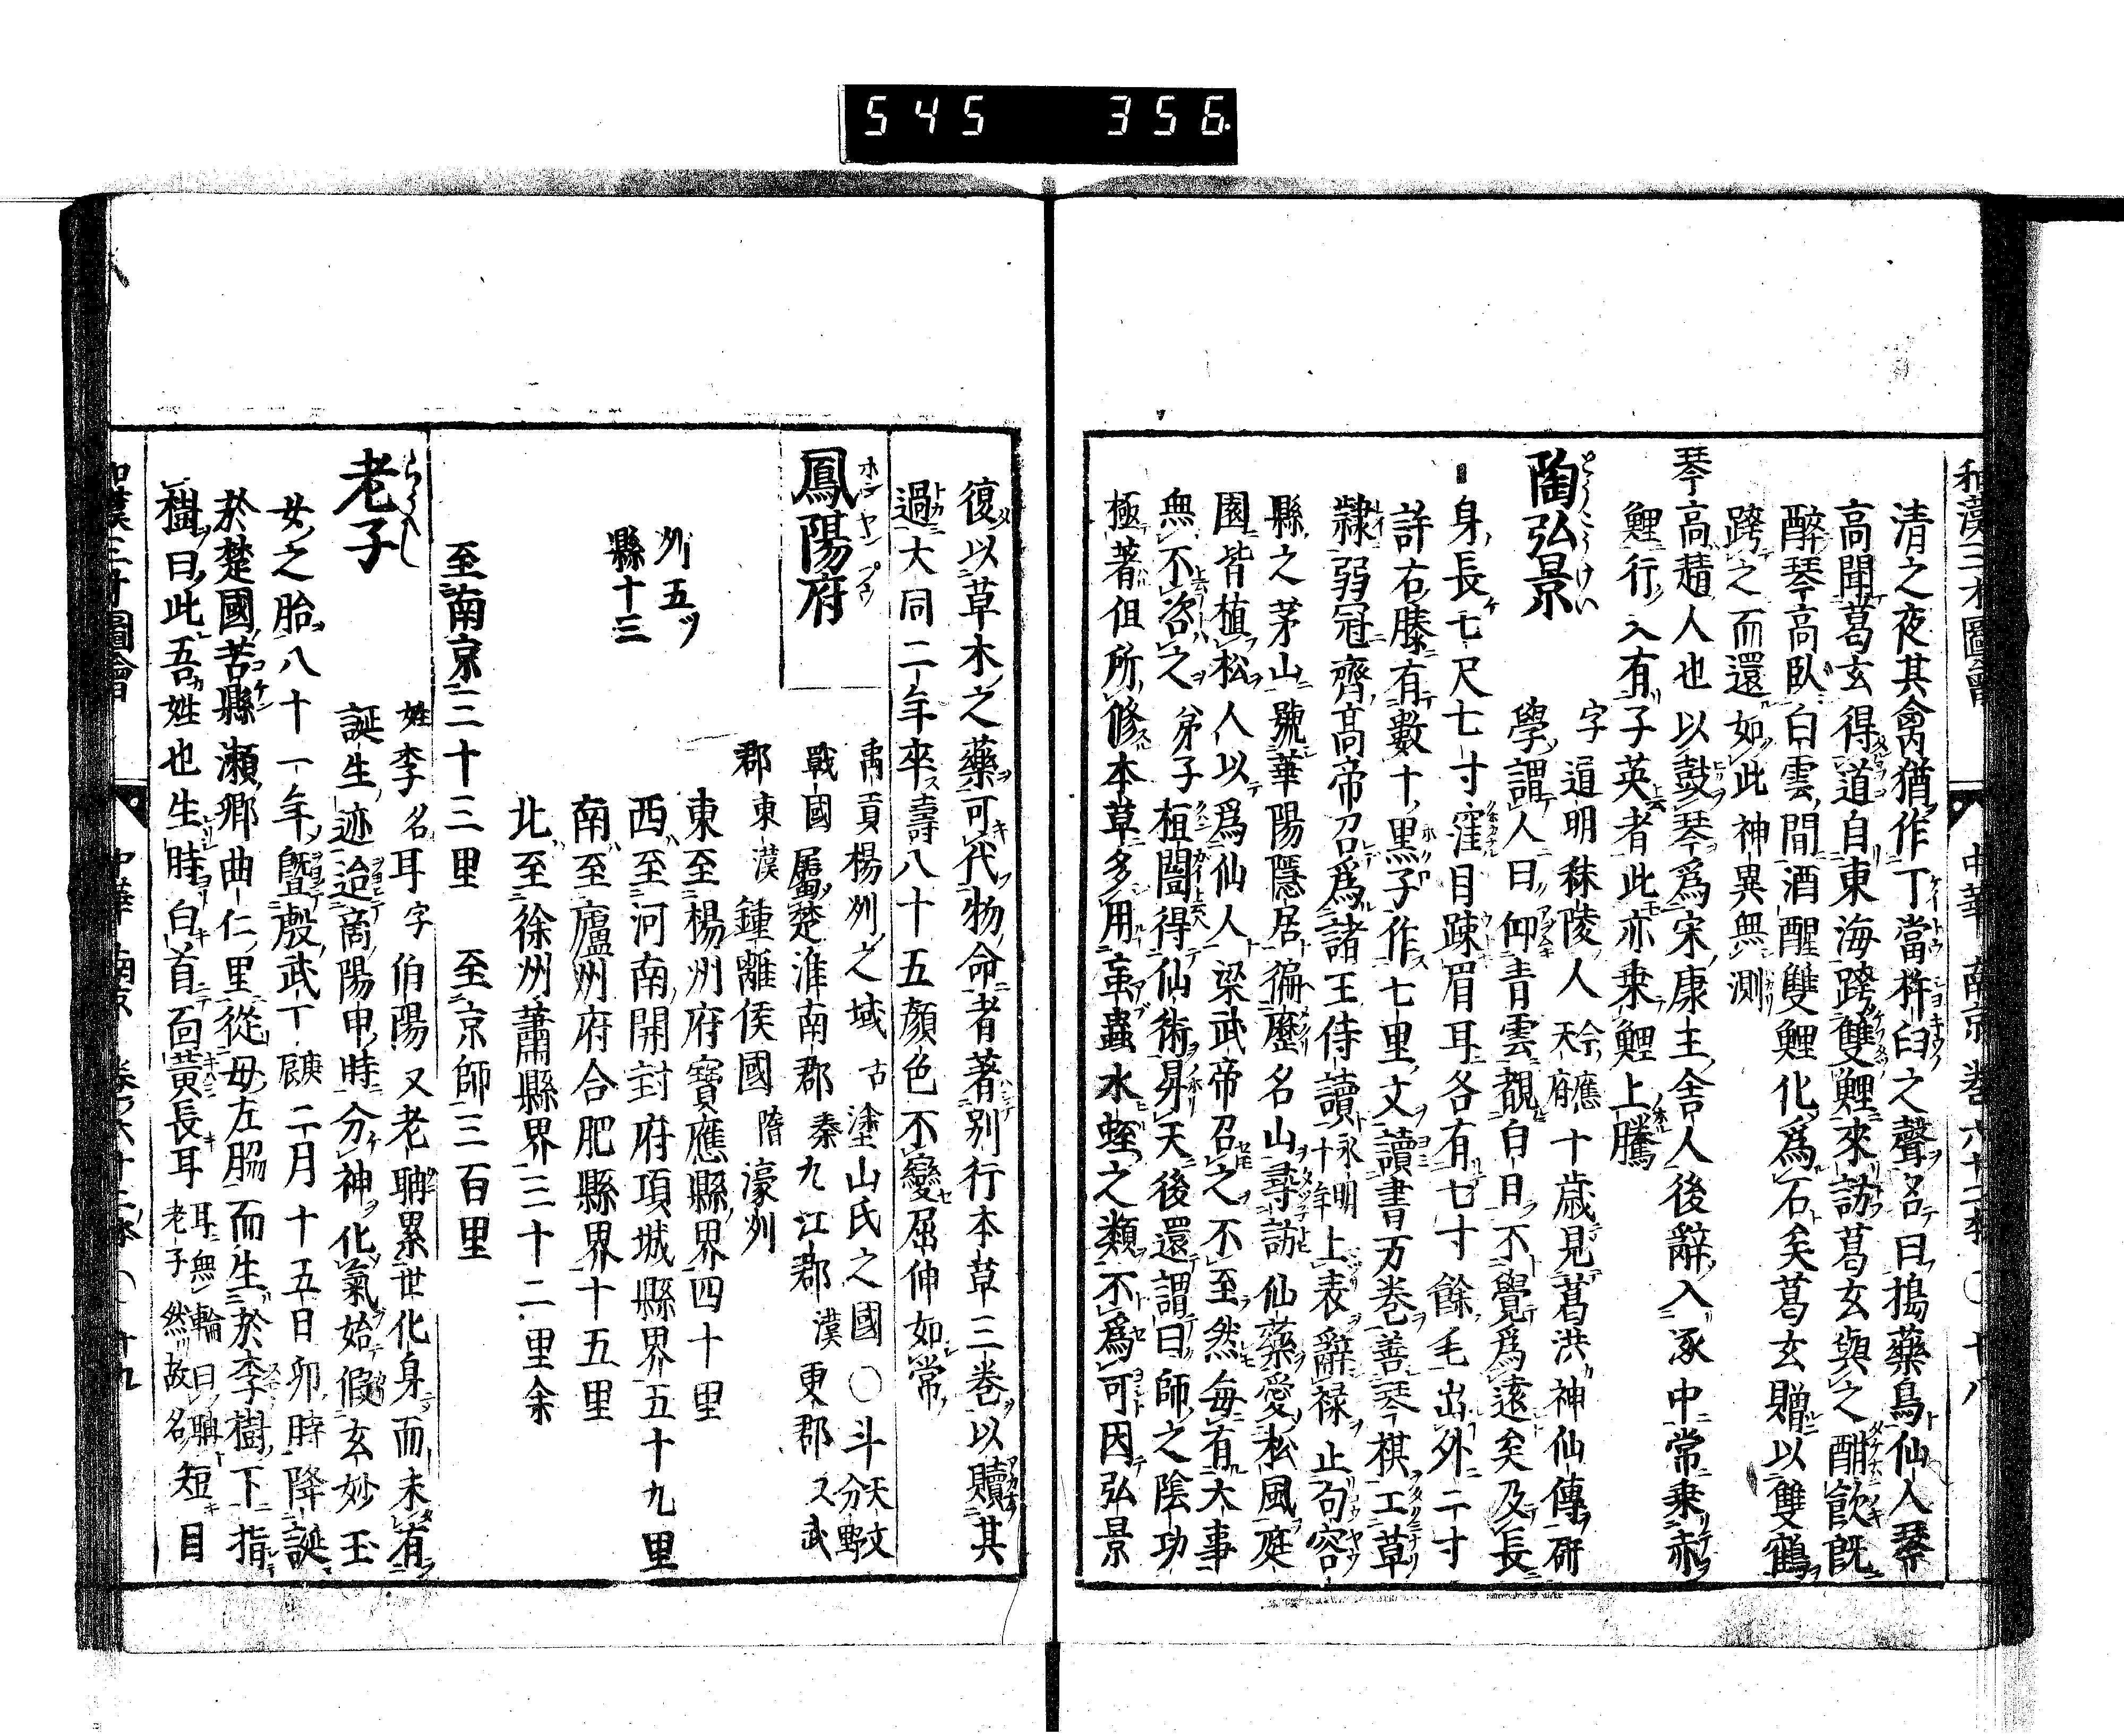 545 356
和漢三才圖會 中華 南京 卷六十二本 〇十八
清之夜其禽猶作丁當杵臼之聲名曰搗藥鳥仙人琴
高聞葛玄得道自東海跨雙鯉來訪葛玄與之酣飮既
醉琴高臥白雲間酒醒雙鯉化爲石矣葛玄贈以雙鶴
跨之而還如此神異無測
琴高趙人也以鼓琴爲宋康王舍人後辭入涿中常乗赤
鯉行入有子英者此亦乗鯉上騰
陶弘景 字道明秣陵人今應天府十歳見葛洪神仙傳研
學謂人曰仰青雲覩白日不覺爲遠矣及長
身長七尺七寸窪目踈眉耳各有七寸餘毛出外二寸
許右膝有數十黒子作七里文讀書万卷善琴棋工草
隸弱冠齊高帝召爲諸王侍讀永明十年上表辭禄止句容
縣之茅山號華陽隱居徧歷名山尋訪仙藥愛松風庭
園皆植松人以爲仙人梁武帝召之不至然毎有大事
無不咨之弟子桓闓得仙術昇天後還謂曰師之陰功
極著但所修本草多用䖟蟲水蛭之類不爲可因弘景
復以草木之藥可代物命者著別行本草三卷以贖其
過大同二年卒壽八十五顏色不變屈伸如常
鳳陽府 禹貢楊州之域古塗山氏之國〇斗天文分野
戰國屬楚淮南郡秦九江郡漢更郡又武
郡東漢鍾離侯國隋濠州
州五ツ 東至楊州府寶應縣界四十里
縣十三 西至河南開封府項城縣界五十九里
南至廬州府合肥縣界十五里
北至徐州蕭縣界三十二里余
至南京三十三里 至京師三百里
老子 姓李名耳字伯陽又老聃累世化身而未有
誕生迹迨商陽甲時分神化氣始假玄妙玉
女之胎八十一年曁殷武丁庚辰二月十五日卯時降誕
於楚國苦縣瀬鄉曲仁里從母左脇而生於李樹下指
樹曰此吾姓也生時白首面黃長耳耳無輪曰聃老子然故名短目
和漢三才圖會 中華 南京 卷六十二本 〇十九